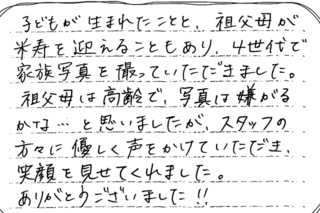 子どもが生まれたことと、祖父母が
米寿を迎えることもあり、4世代で
家族写真を撮っていただきました。
祖父母は高齢で、写真は嫌がる
かな…と思いましたが、スタッフの
方々に優しく声をかけていただき、
笑顔を見せてくれました。
ありがとうございました!!